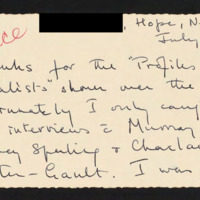 ce
, Hope, N.
July
nks for the "Profiles
alists" shown over the
rtunately I only caug
interviews = Murray
cy Sperling + Charla
ter-Gault. I was